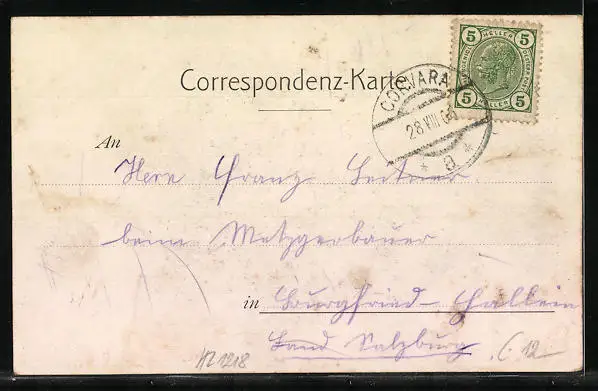 Correspondenz-Karte
5 HELLER 5
5 HELLER 5
CORVARA
28 VIII 0
* a *
An
Herr Franz Leitner.
beim Metzgerbauer
in Burgfried-Hallein
Land Salzburg
12